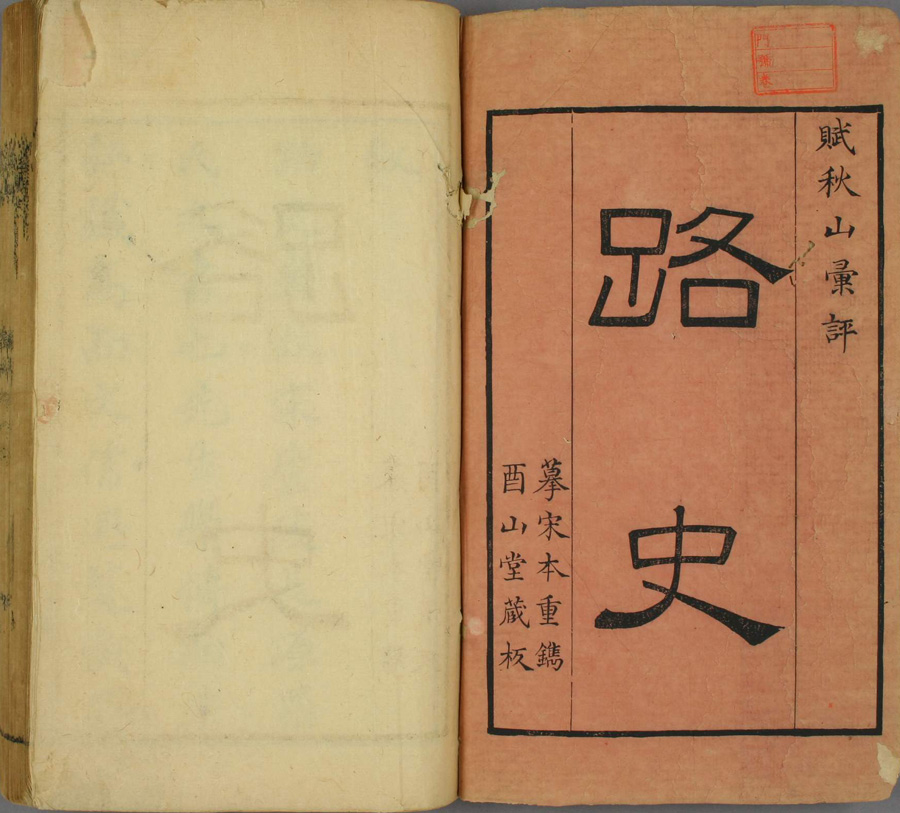 賦秋山彙評
路史
摹宋本重鐫
酉山堂蔵板